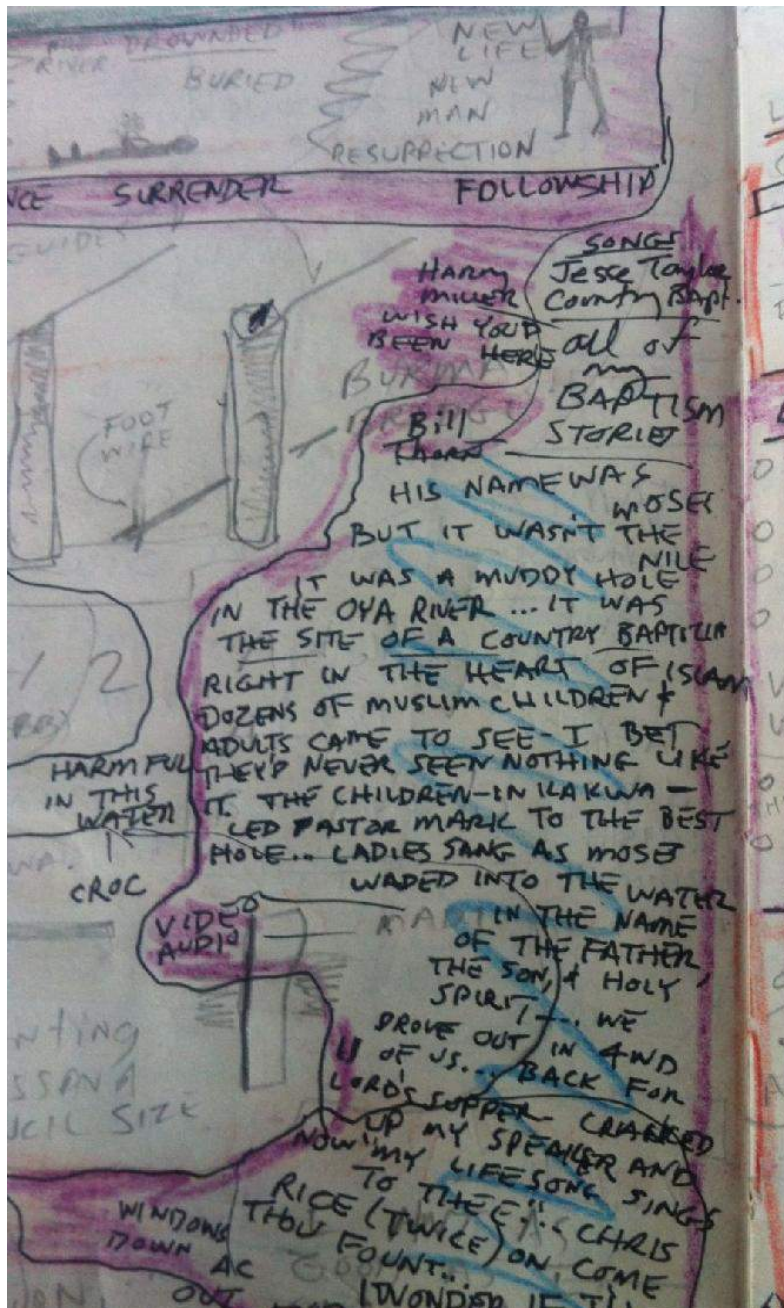 RIVER DROWNDED
BURIED
NEW
LIFE
NEW
MAN
RESURRECTION
SURRENDER FOLLOWSHIP
SONGS
Jesse Taylor
Country Bapt.
HARRY
MILLER
WISH YOU'D
BEEN HERE
all of
my
BAPTISM
STORIES
BURMA
BRIDGE
FOOT
WIRE
Bill
Thorn
HIS NAME WAS
MOSES
BUT IT WASN'T THE
NILE
IT WAS A MUDDY HOLE
IN THE OYA RIVER ... IT WAS
THE SITE OF A COUNTRY
RIGHT IN THE HEART OF ISLAM
DOZENS OF MUSLIM CHILDREN &
ADULTS CAME TO SEE - I BET
THEY'D NEVER SEEN NOTHING LIKE
IT. THE CHILDREN - IN KAKWA -
LED PASTOR MARK TO THE BEST
HOLE.. LADIES SANG AS MOSES
WADED INTO THE WATER
IN THE NAME
OF THE FATHER,
THE SON, & HOLY
SPIRIT ... WE
DROVE OUT IN 4WD
11 OF US... BACK FOR
LORD'S SUPPER CRANKED
UP MY SPEAKER AND
NOW "MY LIFESONG SINGS
TO THEE".. CHRIS
RICE (TWICE) ON COME
THOU FOUNT..
2
HARMFUL
IN THIS
WATER
CROC
VIDEO
AUDIO
SIZE
WINDOWS
DOWN AC
OUT